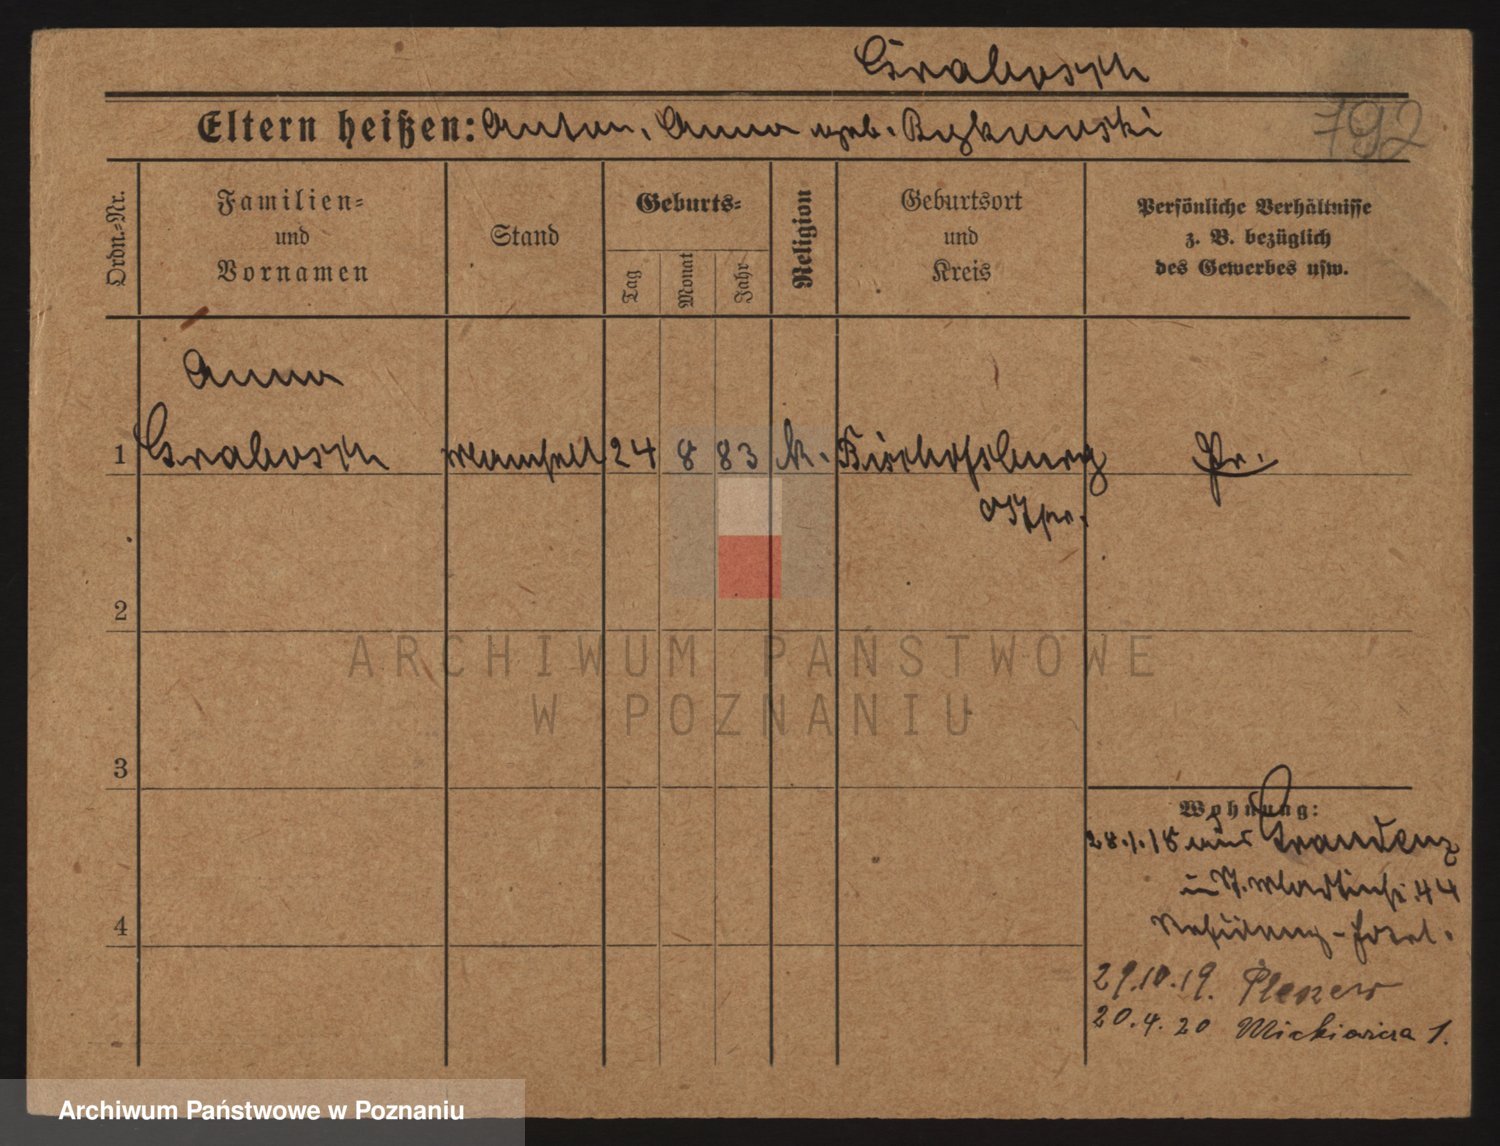 Grabosch
Eltern heißen: Anton, Anna geb.
792
Ordn.-Nr.
Familien-
und
Vornamen
Stand
Geburts-
Tag
Monat
Jahr
Religion
Geburtsort
und
Kreis
Persönliche Verhältnisse
z. B. bezüglich
des Gewerbes usw.
Anna
1 Grabosch Mamsell 24 8 83 k. Bischofsburg Pr.
Ostpr.
2
3
4
Wohnung:
28.1.18 aus Graudenz
in St. Martinstr. 44
Residenz-Hotel.
29.10.19. Pleszew
20.4.20 Mickiewicza 1.
ARCHIWUM PAŃSTWOWE
W POZNANIU
Archiwum Państwowe w Poznaniu